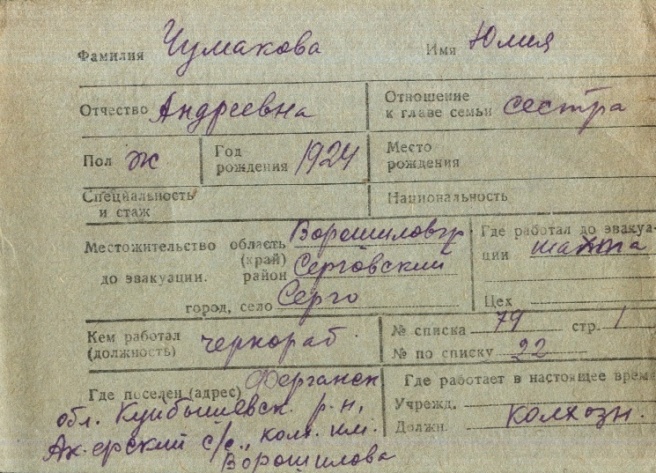 Фамилия Чумакова Имя Юлия
Отчество Андреевна Отношение к главе семьи сестра
Пол ж Год рождения 1924 Место рождения
Специальность и стаж Национальность
Местожительство область (край) Ворошиловгр Где работал до эвакуации шахта
до эвакуации. район Серговский
город, село Серго Цех
Кем работал (должность) чернораб № списка 79 стр. 1
№ по списку 22
Где поселен (адрес) Ферганск Где работает в настоящее время
обл. Куйбышевск. р-н, Учрежд.
с/с., колх. им. Должн. колхозн.
Ворошилова